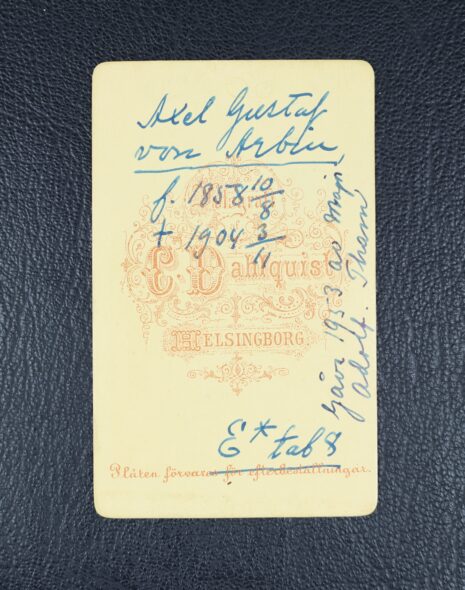 Axel Gustaf
von Arbin
f. 1858 10/8
† 1904 3/11
E. Dahlquist
HELSINGBORG
E* tab 8
Plåten förvaras för efterbeställningar.
Gåva 1953 av Major
Adolf. Tham